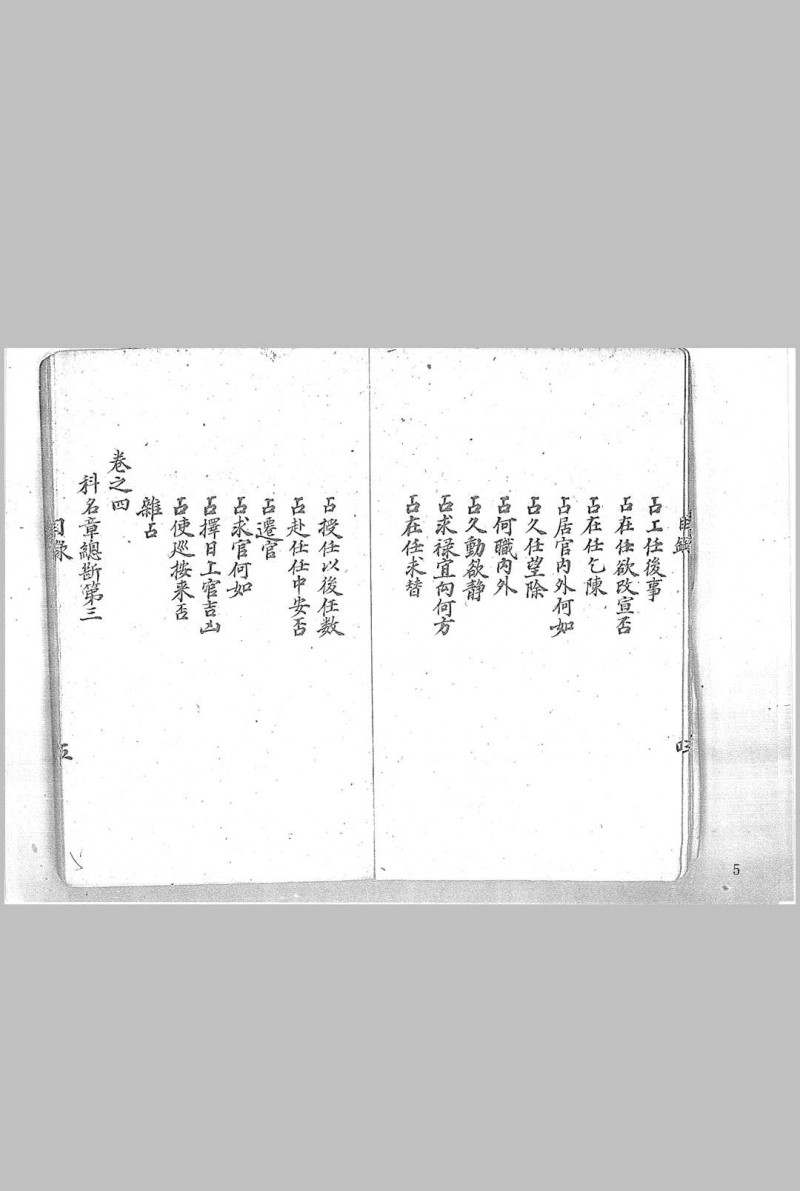 目錄
四
占上任後事
占在任欲改宣否
占在任乞陳
占居官內外何如
占久任望除
占何職內外
占久動欲靜
占求祿宜向何方
占在任求替
占授任以後任數
占赴任任中安否
占遷官
占求官何如
占擇日上官吉凶
占使巡按来否
雜占
卷之四
科名章總斷第三
目錄
五
5